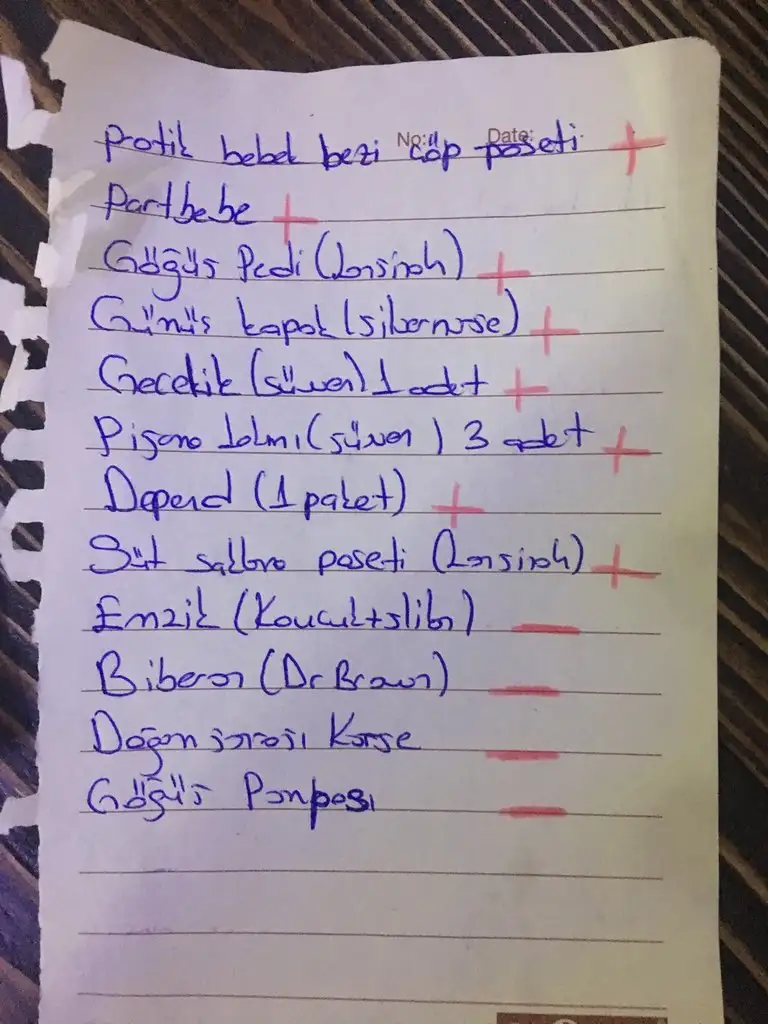 No: Date:
Pratik bebek bezi çöp poseti +
Partbebe +
Göğüs Pedi (Lansinoh) +
Gümüş kapak (silvernurse) +
Gecelik (süwen) 1 adet +
Pijama takımı (süwen) 3 adet +
Depend (1 paket) +
Süt saklama poseti (Lansinoh) +
Emzik (Kauçuk+slikon) -
Biberon (Dr Brown) -
Doğum sonrası Korse -
Göğüs Pompası -